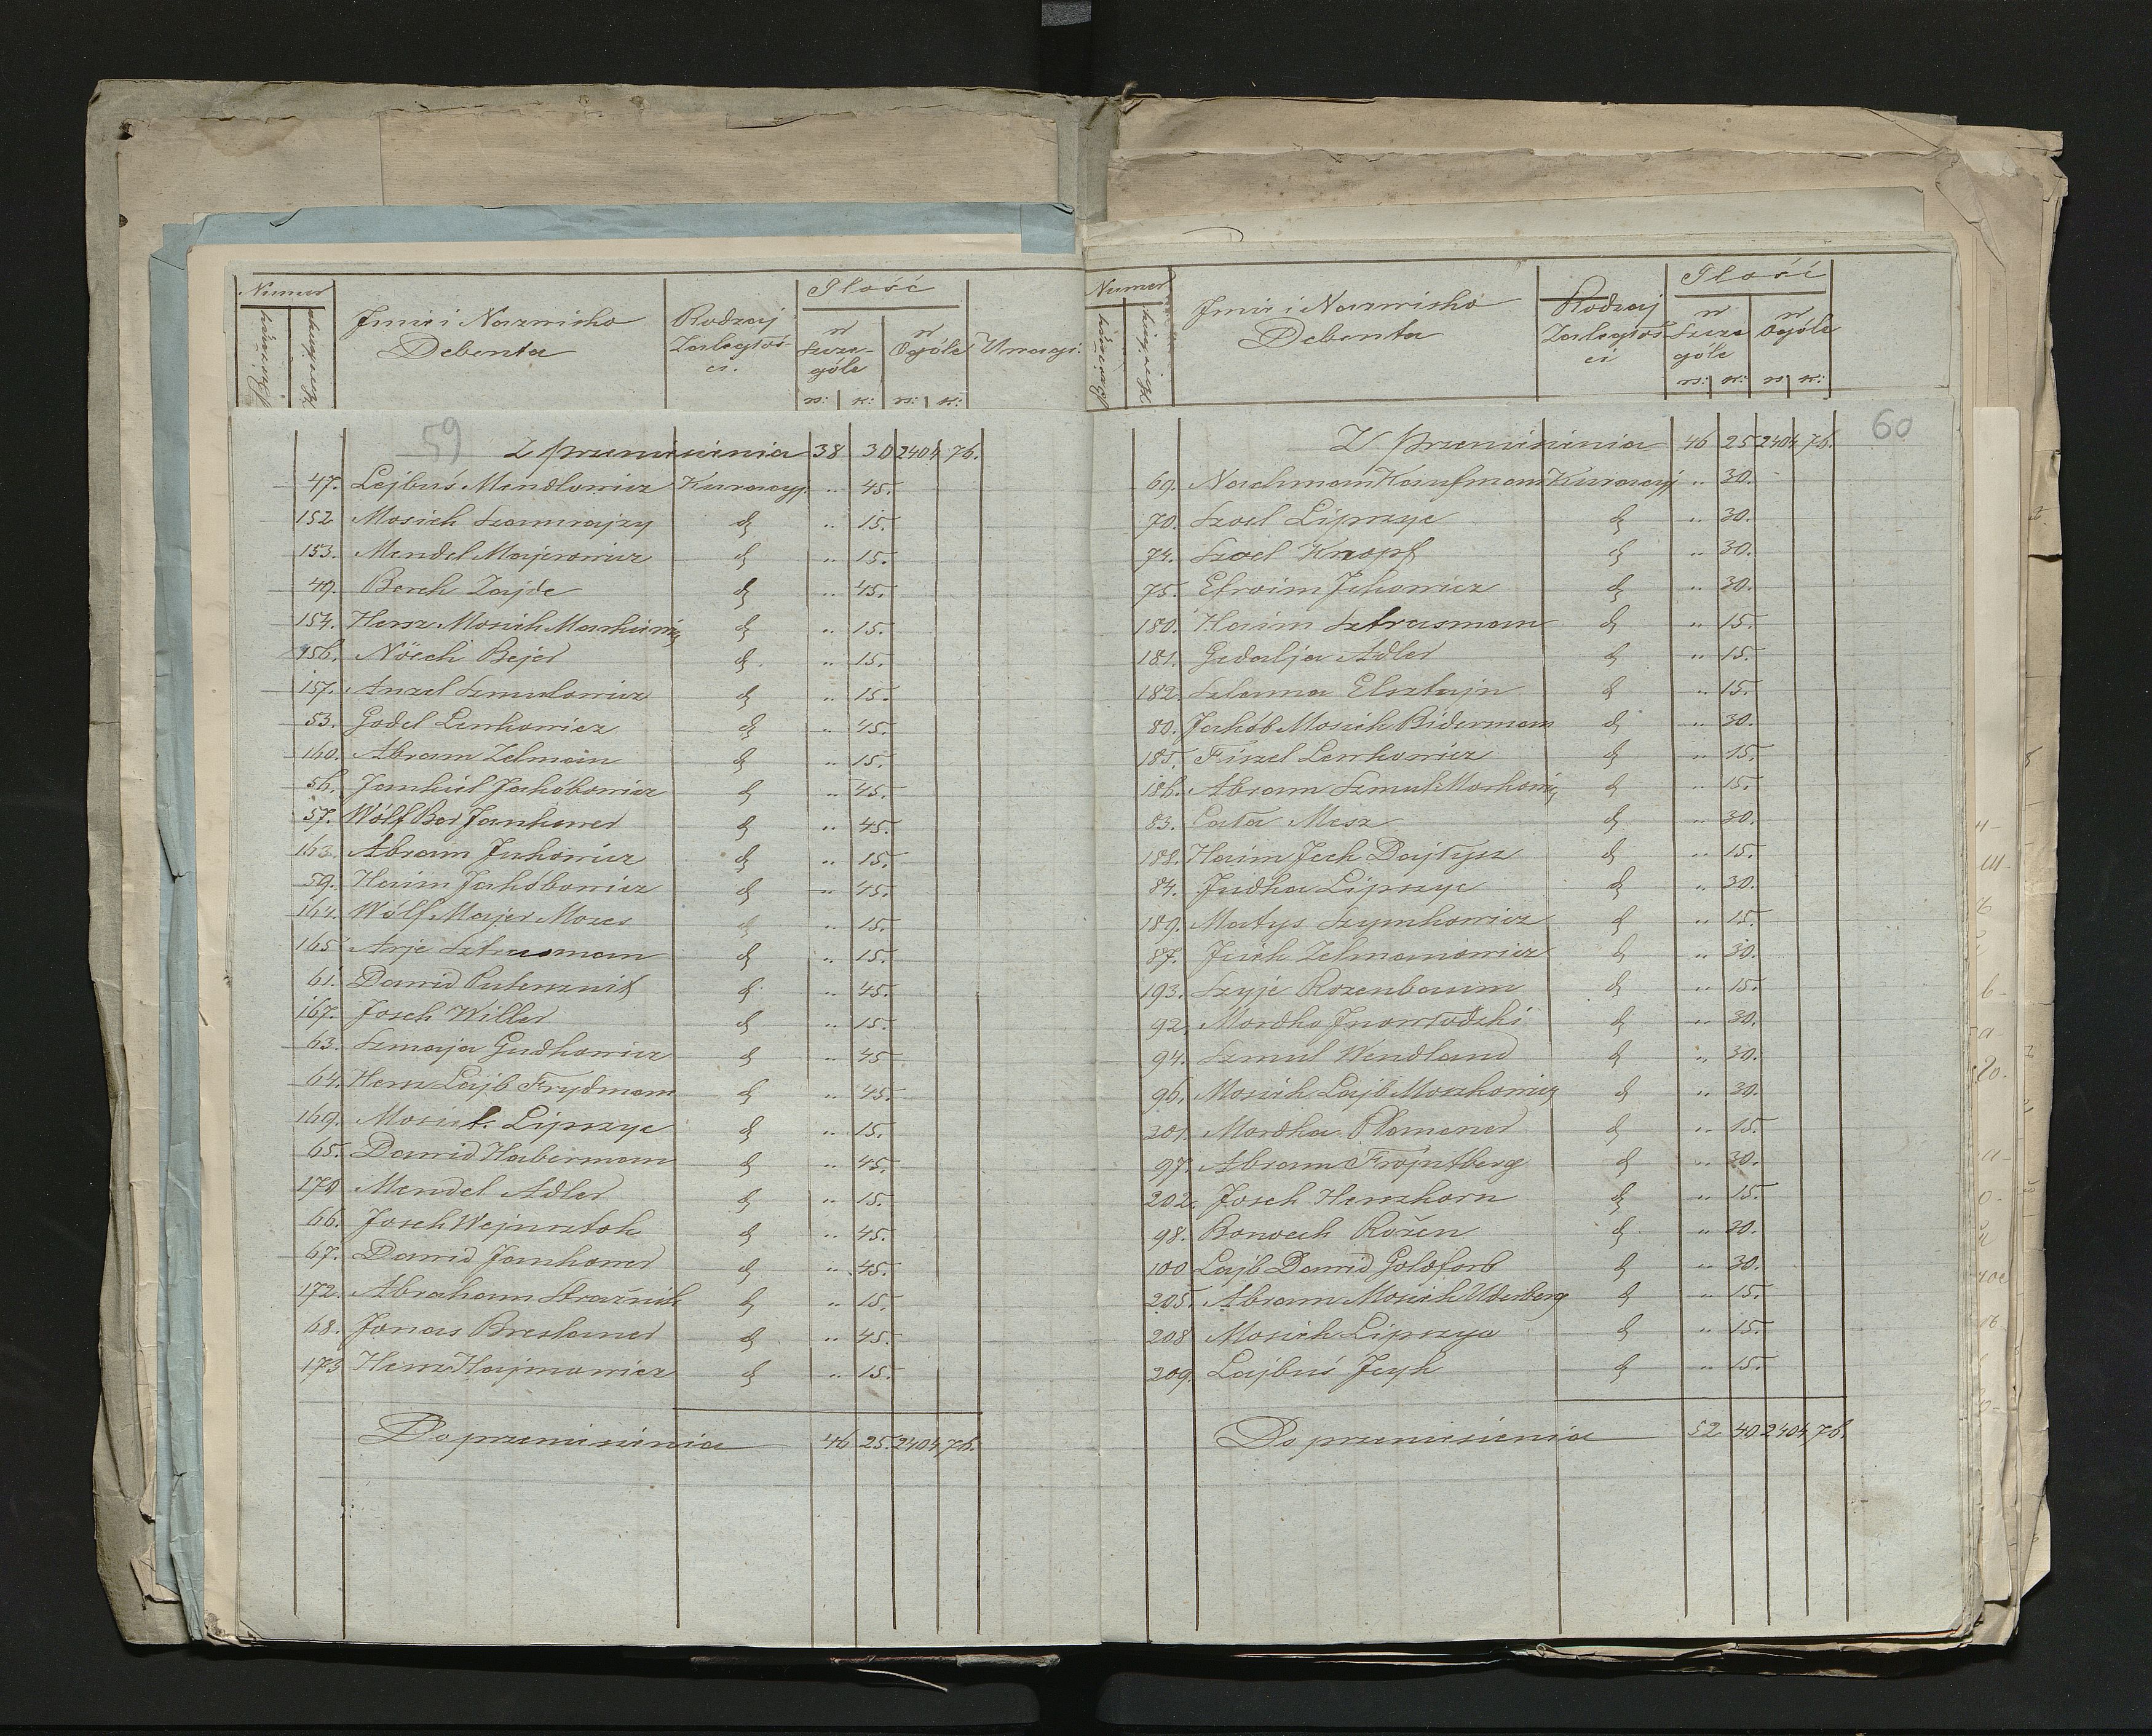 Numer
Imie i Nazwisko
Debenta
Rodzaj
Zaległoś-
ci.
Ilość
w
Szcze-
góle
w
Ogóle
Uwagi.
rs: k: rs: k:
59
Z przeniesienia 38 30 2404 76.
47. Lejbuś Mendlowicz Kuracyj. " 45.
152 Mosiek Szamrajzy d " 15.
153. Mendel Majerowicz d " 15.
49. Berek Zajde d " 45.
154. Hersz Mosiek Markiewicz d " 15.
156. Nösech Bejer d " 15.
157. Anzel Szmulowicz d " 15.
53. Godel Lenkowicz d " 45.
160. Abram Zelmain d " 15.
56. Jankiel Jakóbowicz d " 45.
57. Wólf Ber Jankower d " 45.
163. Abram Jckowicz d " 15.
59. Haim Jakóbowicz d " 45.
164. Wólf Majer Mozes d " 15.
165 Arje Sztrasman d " 15.
61. Dawid d " 45.
167. Josek Willer d " 15.
63. Szmaja Gudkowicz d " 45
64. Hersz Lajb Frydman d " 45.
169. Mosiek Lipszyc d " 15.
65. Dawid Haberman d " 45.
170 Mendel Adler d " 15.
66. Josek Wejnsztok d " 45.
67. Dawid Jankower d " 45.
172. Abraham Strażnik d " 15.
68. Jonas Breslauer d " 45.
173 Hersz Hajmowicz d " 15.
Do przeniesienia 46 25. 2404 76.
Numer
Imie i Nazwisko
Debenta
Rodzaj
Zaległoś
ci
Ilość
w
Szcze
góle
w
Ogóle
rs: k: rs: k:
60
Z przeniesienia 46 25 2404 76.
69. Nachman Kaufman Kuracyj " 30.
70. Szoel Lipszyc d " 30.
74. Szoel Knopf d " 30.
75. Efroim Jckowicz d " 30.
180. Haim Sztrasman d " 15.
181. Gedalja Adler d " 15.
182. Szlama Elsztajn d " 15.
80. Jakób Mosiek Biderman d " 30.
185. Fiszel Lenkowicz d " 15.
186. Abram Szmul Morkowicz d " 15.
83. Cata Mesz d " 30.
188. Haim Jcek Dajtysz d " 15.
84. Judka Lipszyc d " 30.
189. Matys Szymkowicz d " 15.
87. Jciek Zelmanowicz d " 30.
193. Szyje Rozenbaum d " 15.
92. Mordka Inowłodzki d " 30.
94. Szmul Wendland d " 30.
96. Mosiek Lajb Moszkowicz d " 30.
201. Mordka Plamener d " 15.
97. Abram Frojntberg d " 30.
202. Josek Herszkorn d " 15.
98. Boruech Rożen d " 30.
100 Lajb Dawid Goldfarb d " 30.
205. Abram Mosiek Uderberg d " 15.
208 Mosiek Lipszyc d " 15.
209. Lajbuś Jcyk d " 15.
Do przeniesienia 52 40. 2404 76.